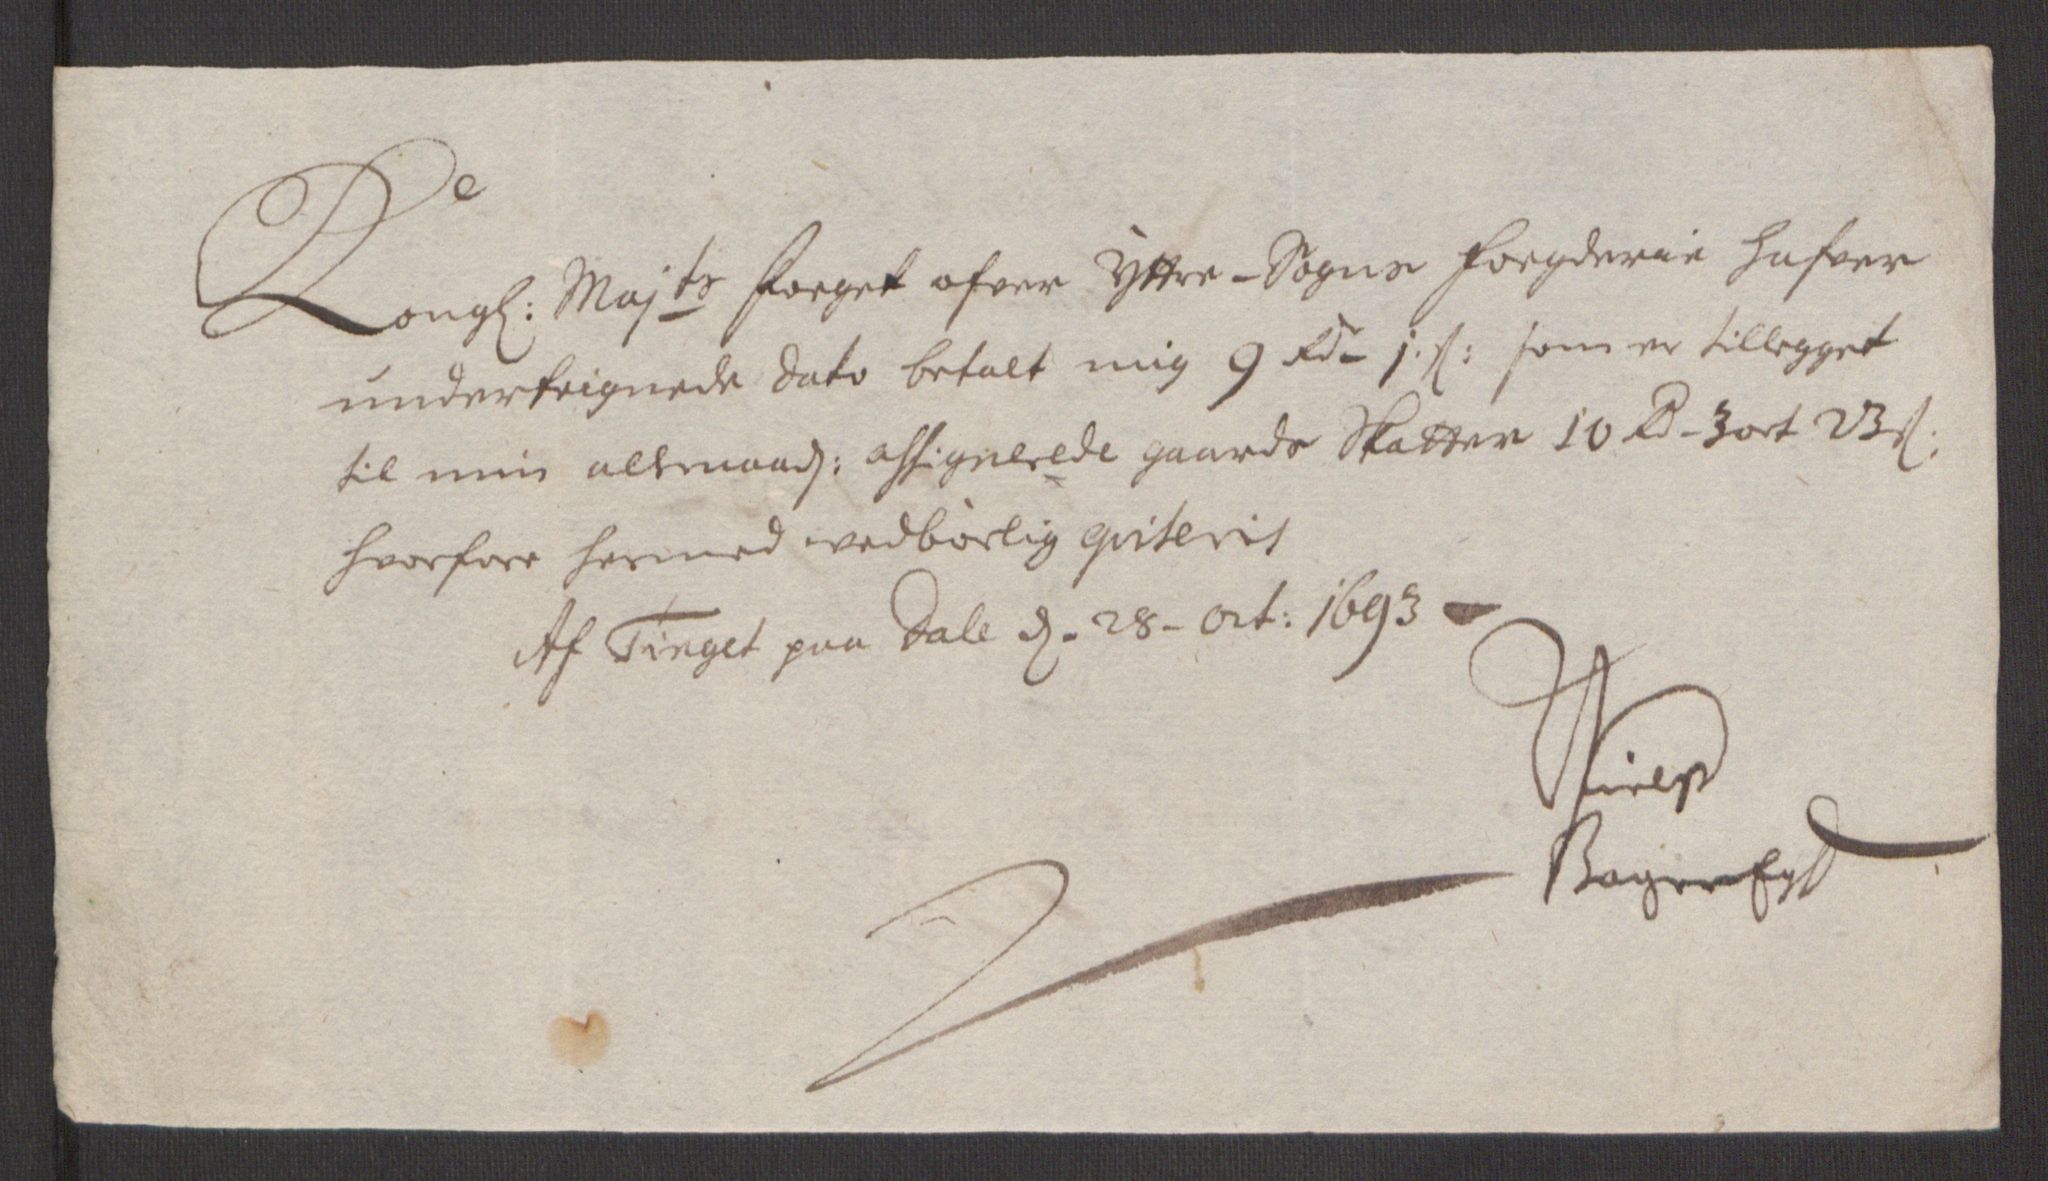 De
Kongl: Majts Foeget ofver Yttre-Sogns Foegderie hafver
underteignede dato betalt mig 9 Rd- j. s: som er tillegget
til min assignerede gaards Skatter 10 Rd- 3 ort 23 s:
hvorfore hermed vedbörlig qviteris
Af Tinget paa Dale d. 28- Oct: 1693
Nielss